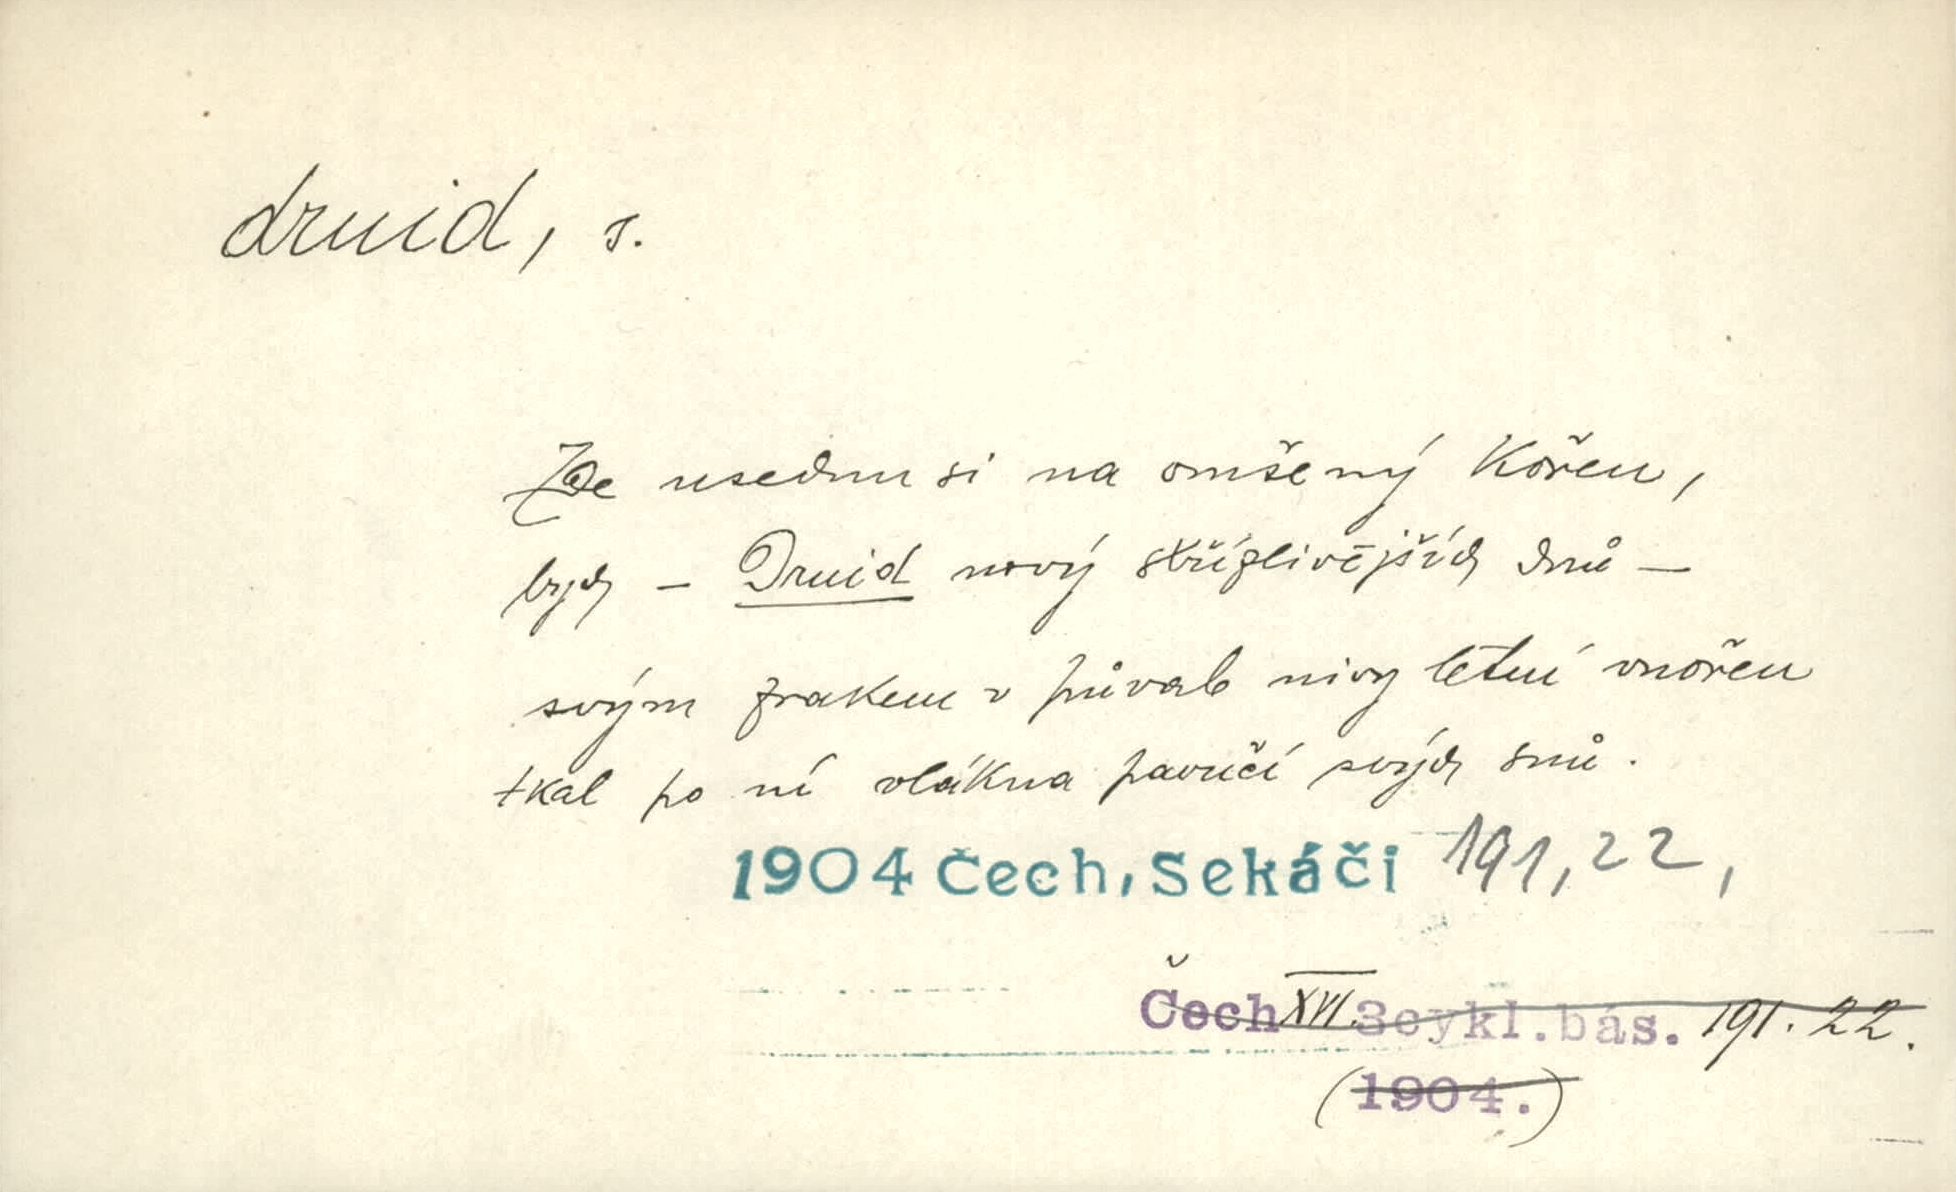 druid, s.
Zde usednu si na omšený kořen,
bych – Druid nový střízlivějších dnů –
svým zrakem v půvab nivy letní vnořen
tkal po ní vlákna pavučí svých snů.
1904 Čech, Sekáči 191,22,
Čech XVI. 3cykl.bás. 191. 22.
(1904.)